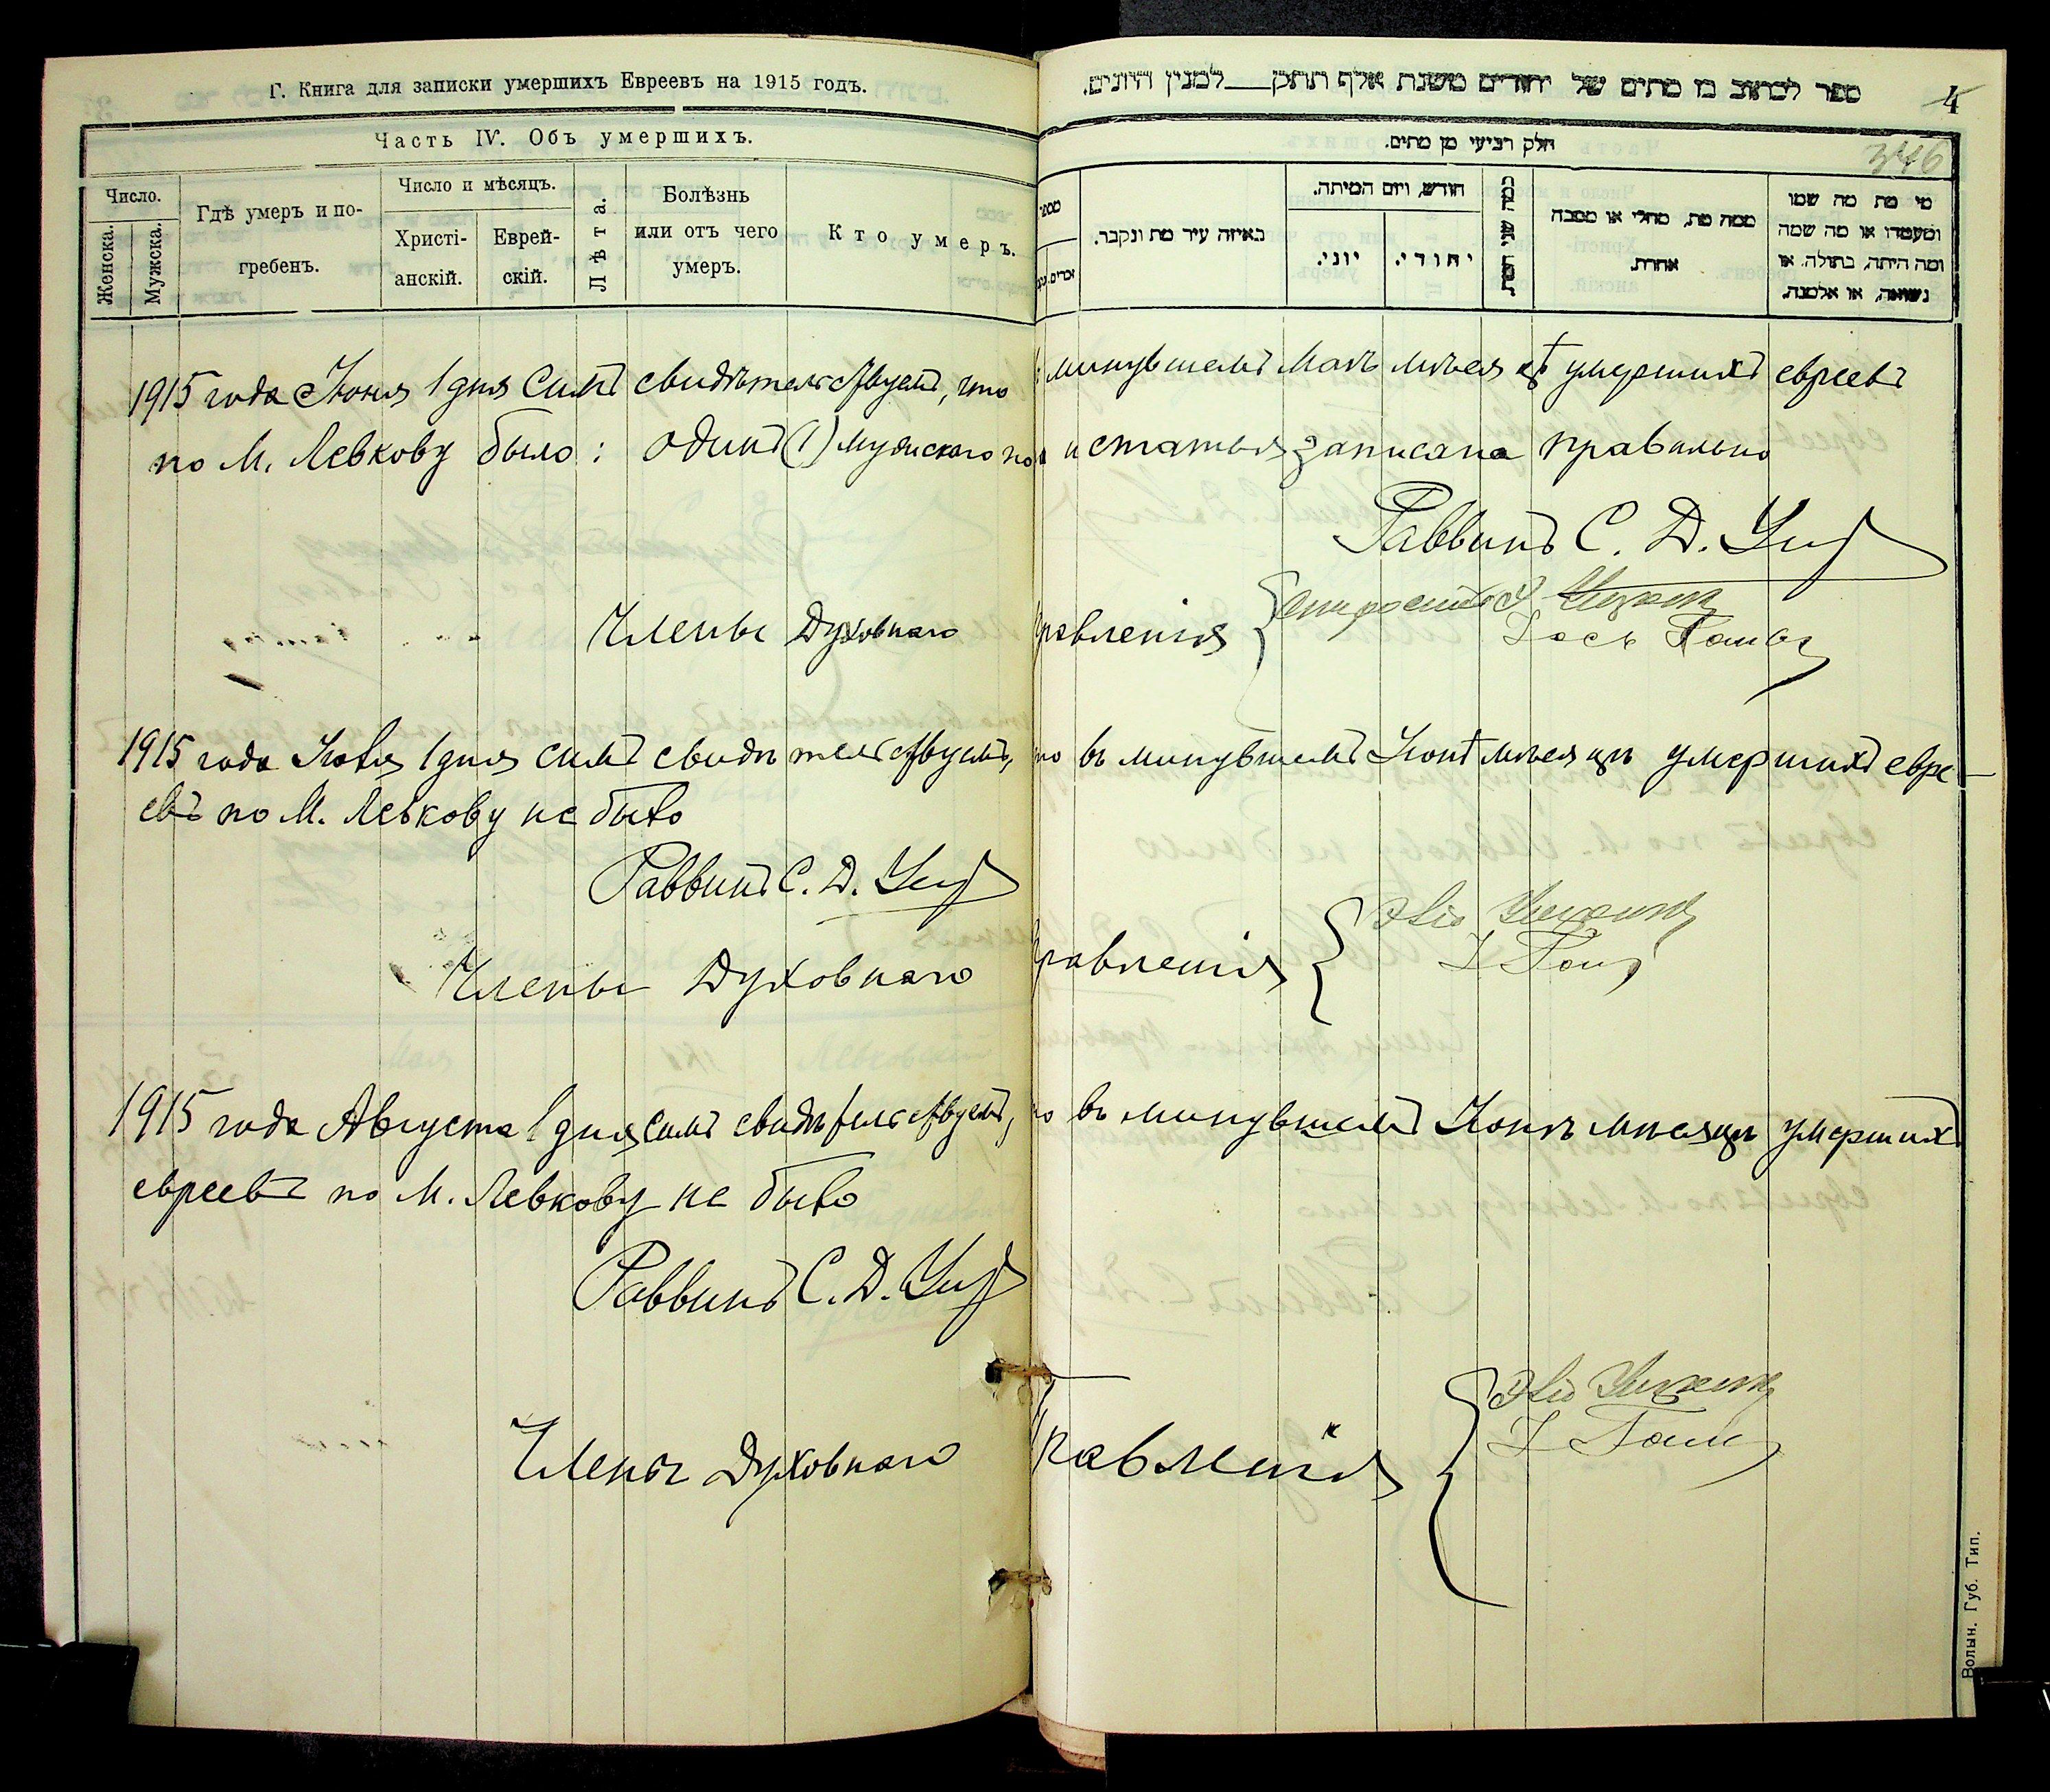 Г. Книга для записки умершихъ Евреевъ на 1915 годъ.
Часть IV. Объ умершихъ.
Число.
Женска.
Мужска.
Гдѣ умеръ и по-
гребенъ.
Число и мѣсяцъ.
Христі-
анскій.
Еврей-
скій.
Лѣта.
Болѣзнь
или отъ чего
умеръ.
Кто умеръ.
ספר לכתוב בו מתים של יהודים משנת אלף תתק למנין היונים.
4
346
חלק רביעי מן מתים.
מספר
באיזה עיר מת ונקבר.
חודש, ויום המיתה.
יוני.
יהודי.
ממה מת, מחלי או מסבה
אחרת.
מי מת מה שמו
ומעמדו או מה שמה
ומה היתה, בתולה או
נשואה, או אלמנה.
1915 года Іюня 1 дня симъ свидѣтельствуемъ, что въ минувшемъ Маѣ мѣсяцѣ умершихъ евреевъ
по М. Левкову было: одинъ (1) мужскаго пола и статья записана правильно
Раввинъ С. Д.
Члены Духовнаго Правленія
1915 года Іюля 1 дня симъ свидѣтельствуемъ, что въ минувшемъ Іюнѣ мѣсяцѣ умершихъ евре-
евъ по М. Левкову не было
Раввинъ С. Д.
Члены Духовнаго Правленія
1915 года Августа 1 дня симъ свидѣтельствуемъ, что въ минувшемъ Іюлѣ мѣсяцѣ умершихъ
евреевъ по М. Левкову не было
Раввинъ С. Д.
Члены Духовнаго Правленія
Волын. Губ. Тип.